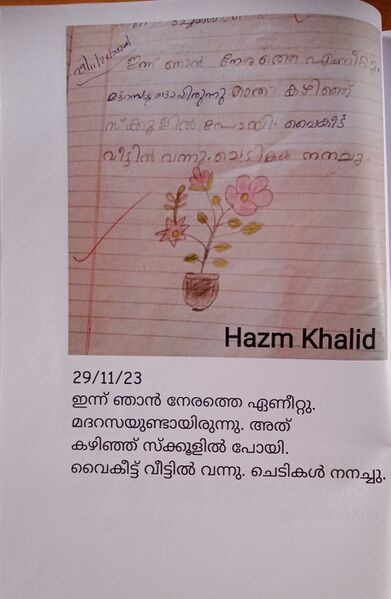 29/11/2023
ഇന്ന് ഞാൻ നേരത്തെ എണീറ്റു.
മദ്റസയുണ്ടായിരുന്നു. അത് കഴിഞ്ഞ്
സ്ക്കൂളിൽ പോയി. വൈകീട്ട്
വീട്ടിൽ വന്നു. ചെടികൾ നനച്ചു.
Hazm Khalid
29/11/23
ഇന്ന് ഞാൻ നേരത്തെ ഏണീറ്റു.
മദറസയുണ്ടായിരുന്നു. അത്
കഴിഞ്ഞ് സ്ക്കൂളിൽ പോയി.
വൈകീട്ട് വീട്ടിൽ വന്നു. ചെടികൾ നനച്ചു.